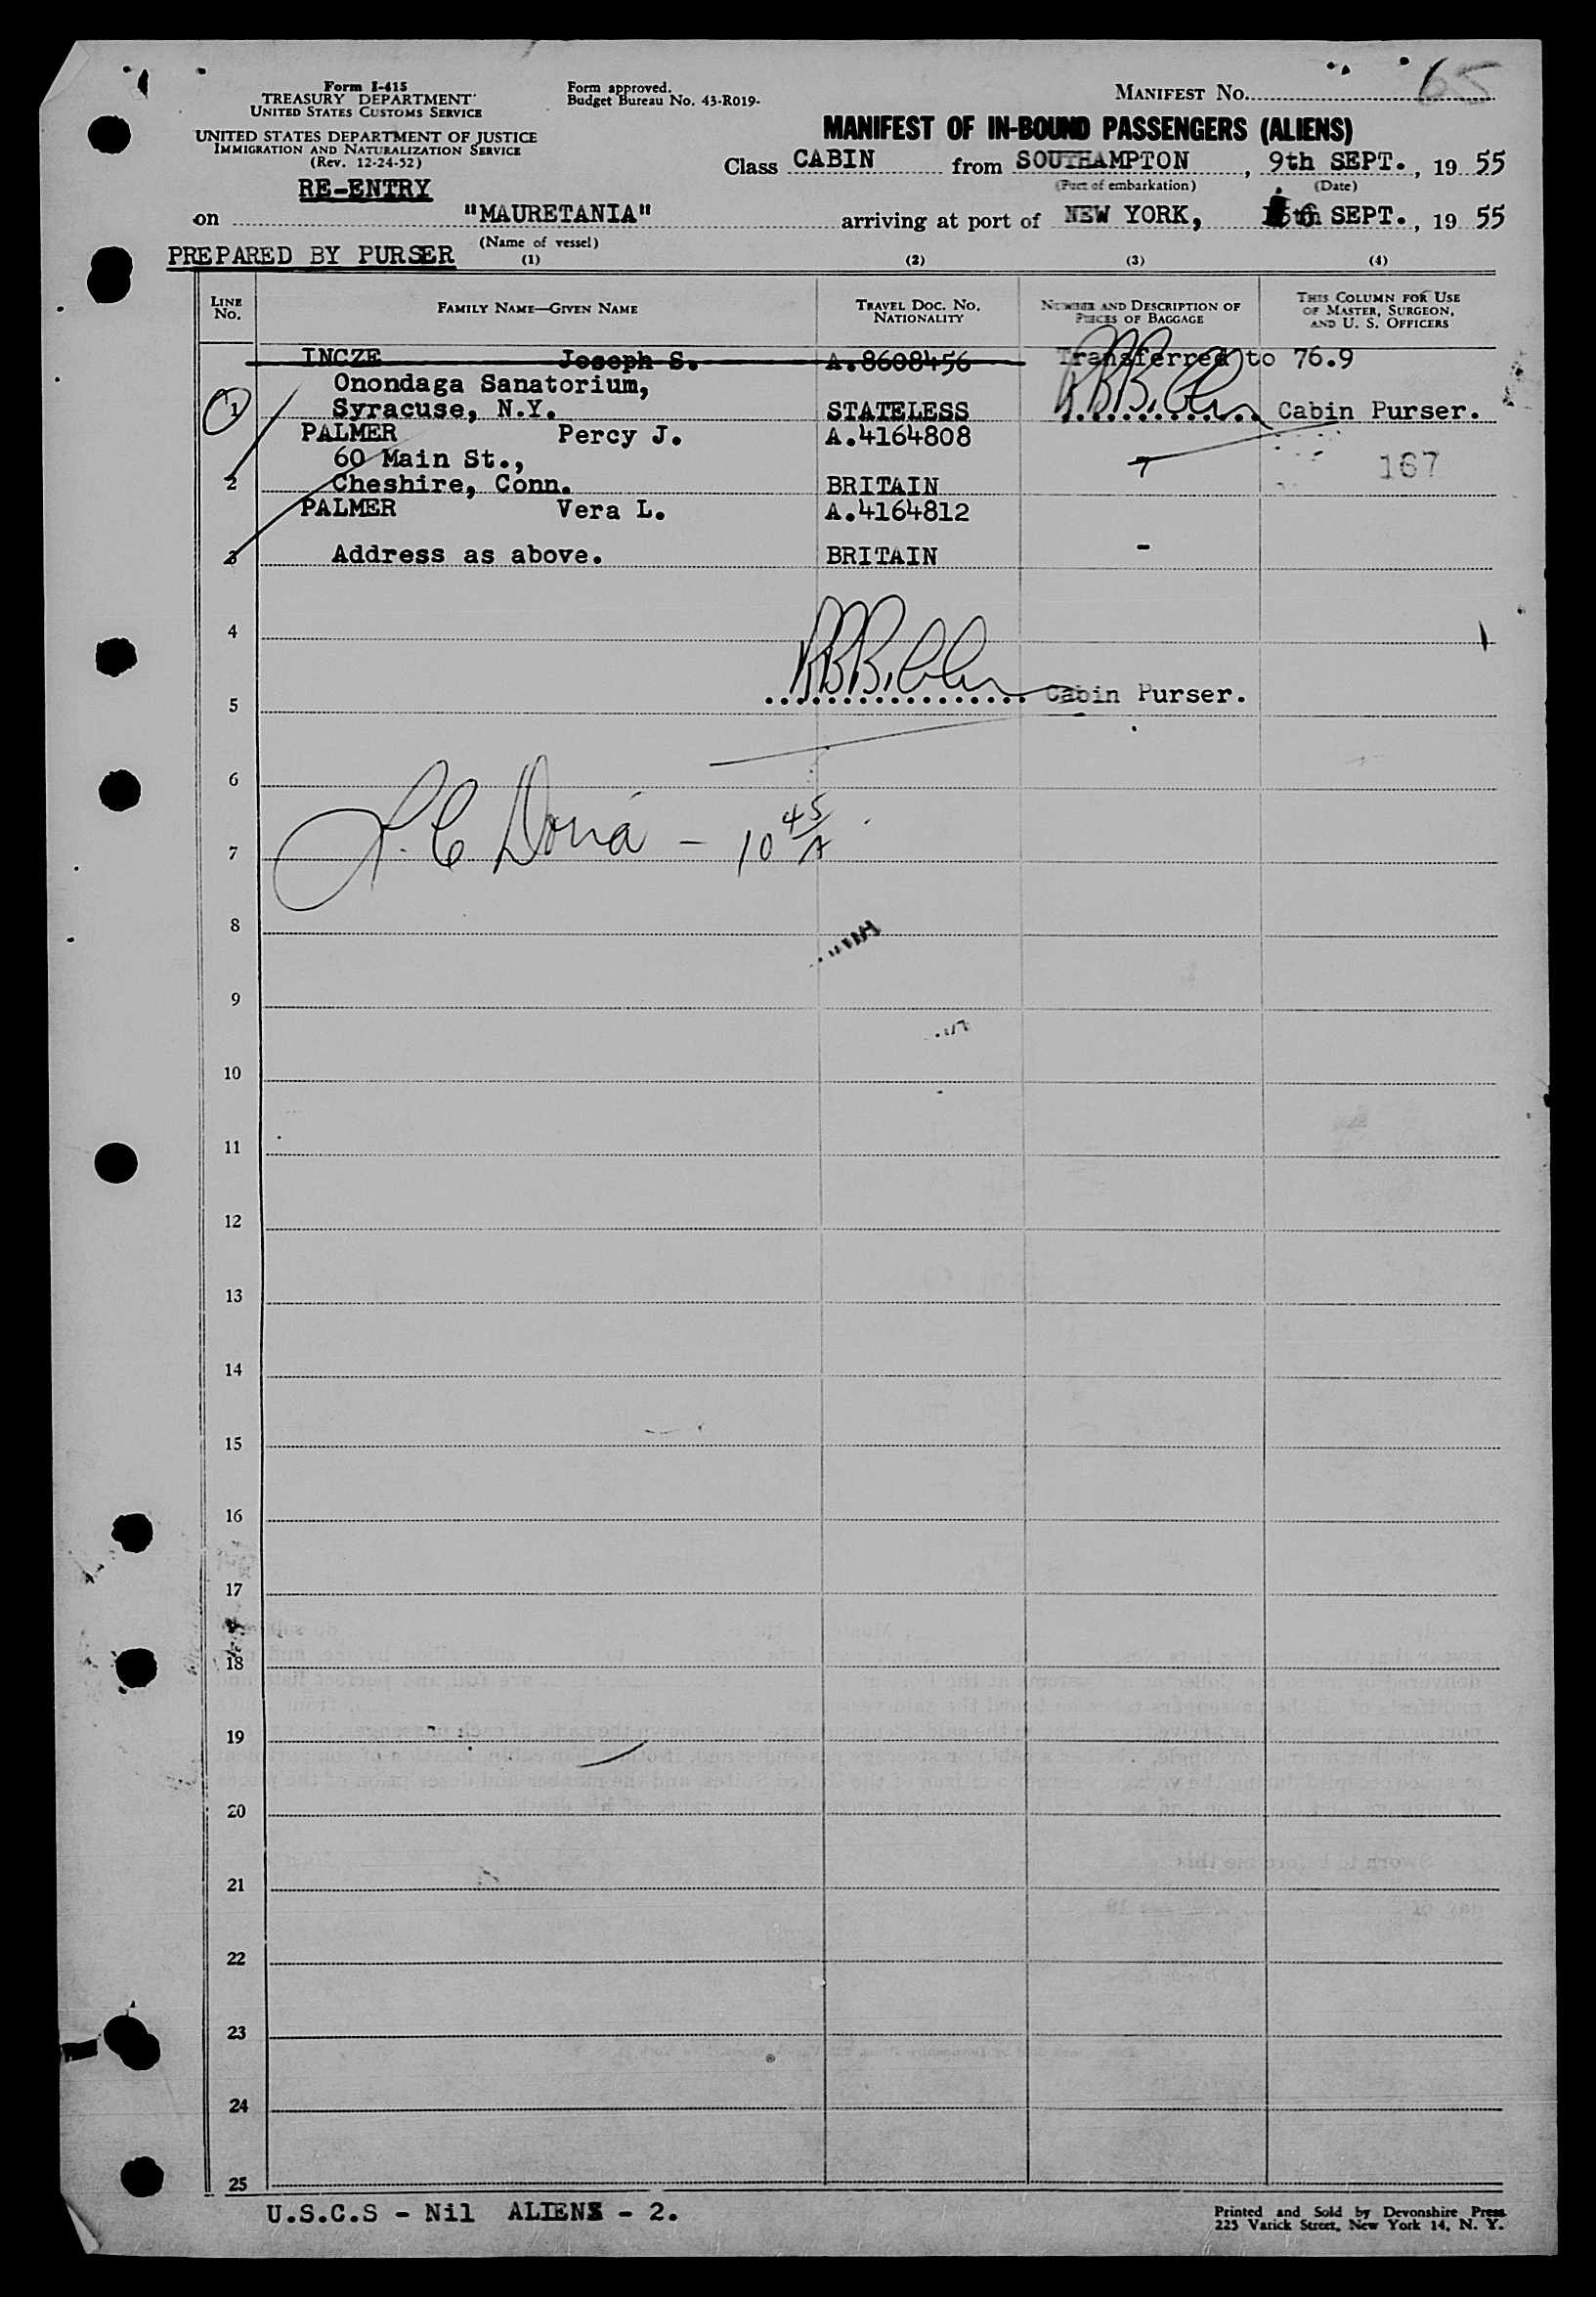 Form I-415
TREASURY DEPARTMENT
UNITED STATES CUSTOMS SERVICE
UNITED STATES DEPARTMENT OF JUSTICE
IMMIGRATION AND NATURALIZATION SERVICE
(Rev. 12-24-52)
RE-ENTRY
Form approved.
Budget Bureau No. 43-R019-
MANIFEST No. 65
MANIFEST OF IN-BOUND PASSENGERS (ALIENS)
Class CABIN from SOUTHAMPTON, 9th SEPT., 19 55
(Port of embarkation) (Date)
on "MAURETANIA" arriving at port of NEW YORK, SEPT., 19 55
(Name of vessel)
PREPARED BY PURSER
(1) (2) (3) (4)
LINE No. FAMILY NAME—GIVEN NAME TRAVEL DOC. No. NATIONALITY NUMBER AND DESCRIPTION OF PIECES OF BAGGAGE THIS COLUMN FOR USE OF MASTER, SURGEON, AND U. S. OFFICERS
INCZE Joseph S. A.8608456 Transferred to 76.9
Onondaga Sanatorium,
1 Syracuse, N.Y. STATELESS Cabin Purser.
PALMER Percy J. A.4164808
60 Main St., 7 167
2 Cheshire, Conn. BRITAIN
PALMER Vera L. A.4164812
3 Address as above. BRITAIN -
4
5 Cabin Purser.
6
7 10 45/A
8
9
10
11
12
13
14
15
16
17
18
19
20
21
22
23
24
25
U.S.C.S - Nil ALIENS - 2.
Printed and Sold by Devonshire Press
225 Varick Street, New York 14, N. Y.